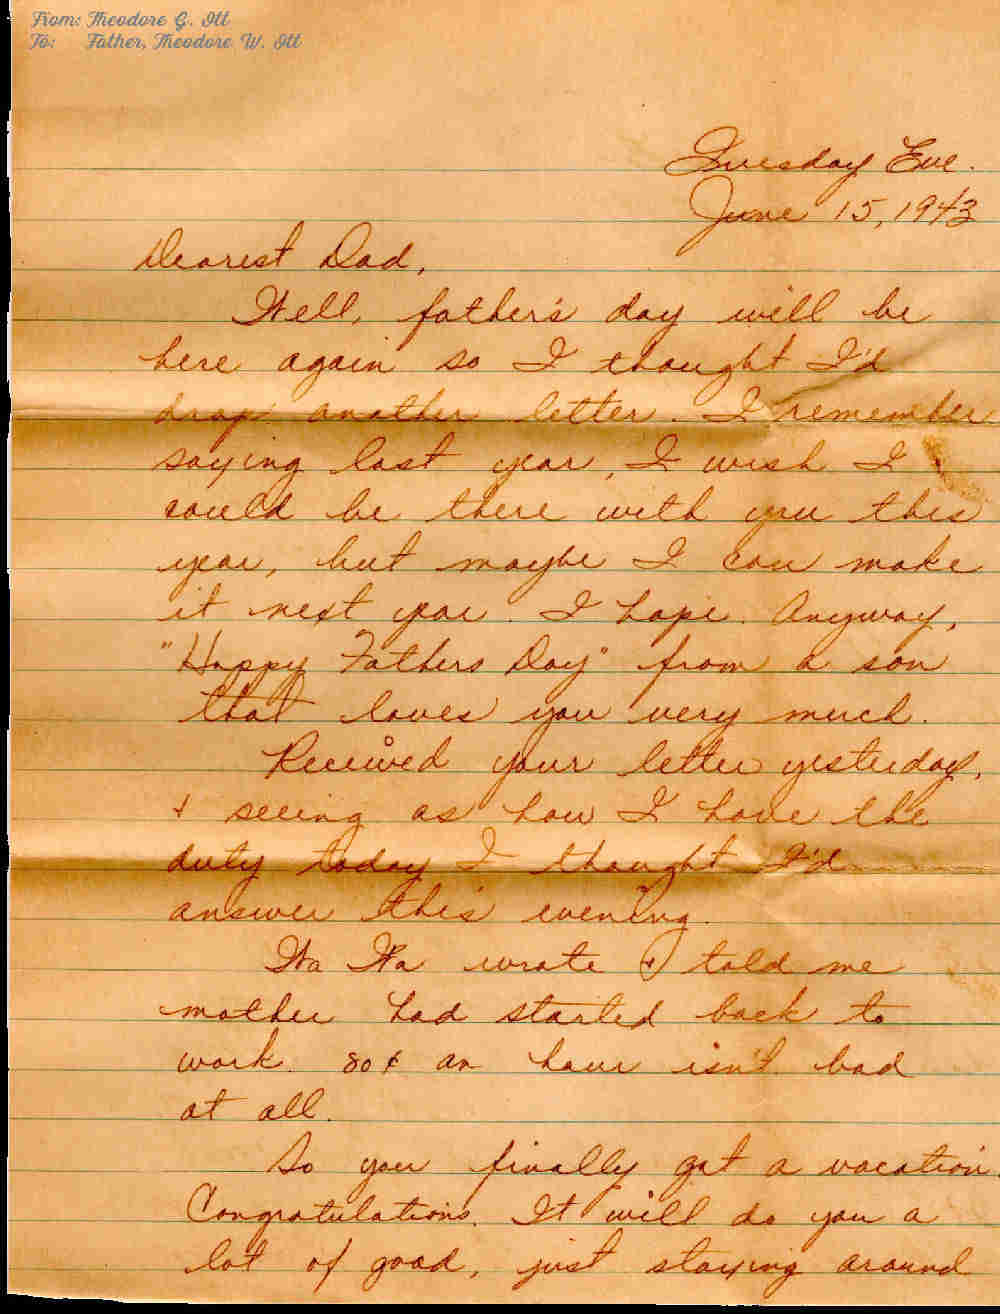 From: Theodore G. Ott
To: Father, Theodore W. Ott
Tuesday Eve.
June 15, 1943
Dearest Dad,
Well, father's day will be
here again so I thought I'd
drop another letter. I remember
saying last year, I wish I
could be there with you this
year, but maybe I can make
it next year. I hope. Anyway,
"Happy Fathers Day" from a son
that loves you very much.
Received your letter yesterday,
& seeing as how I have the
duty today I thought I'd
answer this evening.
Wa Wa wrote & told me
mother had started back to
work. 80¢ an hour isn't bad
at all.
So you finally got a vacation.
Congratulations. It will do you a
lot of good, just staying around